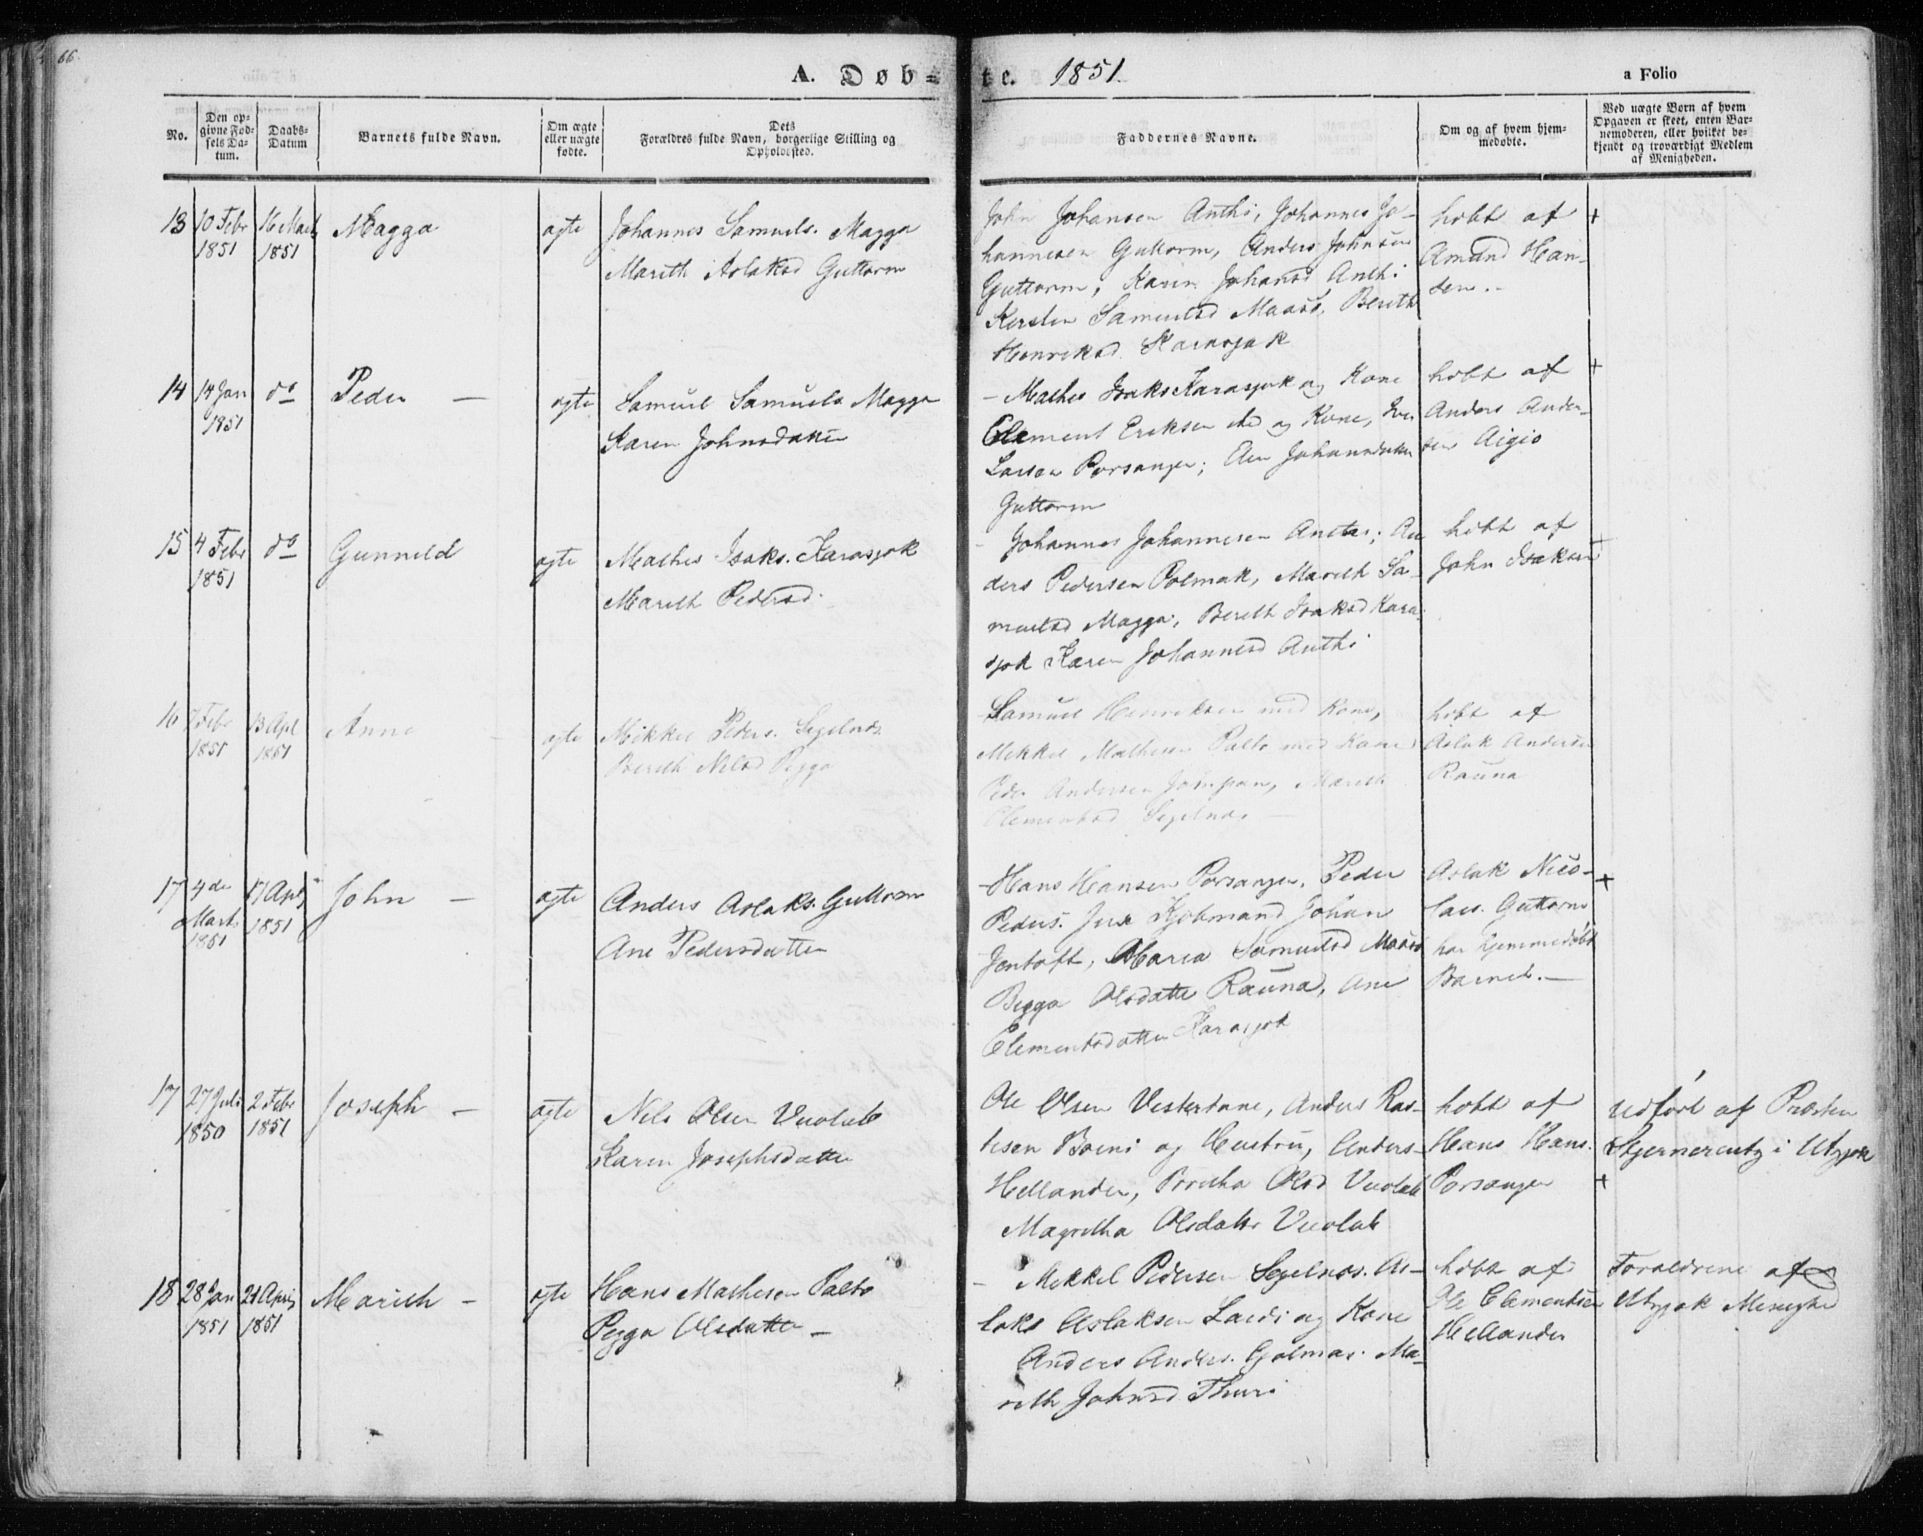 66
A. Døb=
te. 1851.
a Folio
No.
Den op-
givne Fød-
sels Da-
tum.
Daabs-
Datum
Barnets fulde Navn.
Om ægte
eller uægte
fødte.
Dets
Forældres fulde Navn, borgerlige Stilling og
Opholdssted.
Faddernes Navne.
Om og af hvem hjem-
medøbte.
Ved uægte Børn af hvem
Opgaven er skeet, enten Bar-
nemoderen, eller hvilket be-
kjendt og troværdigt Medlem
af Menigheden.
13
10 Febr
1851
16 Mart
1851
Magga
ægte
Johannes Samuels. Magga
Marith Aslaksd Guttorm
John Johansen Anthi, Johannes Jo-
hannesen Guttorm, Anders Johnsen
Guttorm, Karen Johansd Anthi
Kersten Samuelsd Maasø, Bereth
Henriksd. Karasjok
hdbt af
Amund Han-
sen.
+
14
14 Jan
1851
do
Peder
ægte
Samuel Samuels Magga
Karen Johnsdatter
- Mathis Isaks Karasjok og Kone
Clement Eriksen og Kone, Iver
Larsen Porsanger; Ane Johannsdatter
Guttorm
hdbt af
Anders Ander-
sen Aigio
+
15
4 Febr
1851
do
Gunneld
ægte
Mathis Isaks. Karasjok
Marith Pedersd.
- Johannes Johannesen Anthi; An
ders Pedersen Polmak, Marith Sa-
muelsd Magga, Bereth Isaksd Kara-
sjok Karen Johannesd Anthi
hdbt af
John Isaksen
+
16
7 Febr
1851
13 Apl
1851
Anne
ægte
Mikkel Peders. Segelnæs
Berith Nilsd Pigga
Samuel Henriksen med Kone,
Mikkel Mathesen Palto med Kone
Peder Andersen Jompan, Mareth
Clementsd Segelnæs
hdbt af
Aslak Andersen
Rauna
17
4de
Mart.
1851
17 Apl
1851
John
ægte
Anders Aslaks. Guttorm
Ane Pedersdatter
- Hans Hansen Porsanger, Peder
Peders. Kjøbmand Johan
Jentoft, Maria Samuelsd Maasø
Begga Olsdatter Rauna, Ane
Clementsdatter Karasjok
Aslak Nico-
laus. Guttorm
har hjemmedøbt
Barnet.
+
17
27 Juli
1850
2 Febr
1851
Joseph
ægte
Nils Olsen Vuolab
Karen Josephsdatter
Ole Olsen Vestertane, Anders Ras-
tesen Boeni og Hustru, Anders
Hellander, Olsd Vuolab
Magretha Olsdatter Vuolab
hdbt af
Hans Hans.
Porsanger
udført af Præsten
i Utsjok
+
18
28 Jan
1851
21 April
1851
Marith
ægte
Hans Mathesen Palto
Pigga Olsdatter
- Mikkel Pedersen Segelnæs. As-
laks Aslaksen Laiti og Kone
Anders Anders. Gjolmas. Ma-
reth Johnsd Thuri
hdbt af
Ole Clementsen
Hellander
Forældrene af
Utsjok Menighed